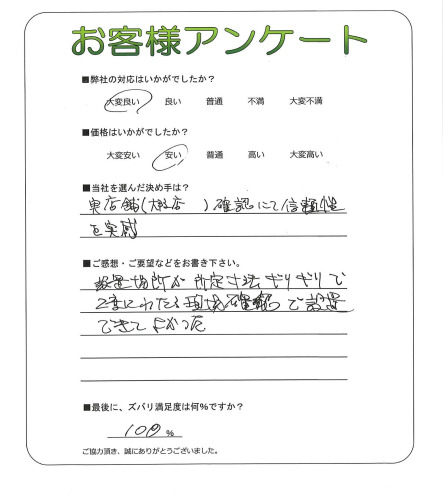 お客様アンケート
■弊社の対応はいかがでしたか？
大変良い 良い 普通 不満 大変不満
■価格はいかがでしたか？
大変安い 安い 普通 高い 大変高い
■当社を選んだ決め手は？
実店舗(大阪店 )確認にて信頼性
を実感
■ご感想・ご要望などをお書き下さい。
設置場所が所定寸法ギリギリで
2度にわたる現場確認で設置
できてよかった
■最後に、ズバリ満足度は何%ですか？
100 %
ご協力頂き、誠にありがとうございました。